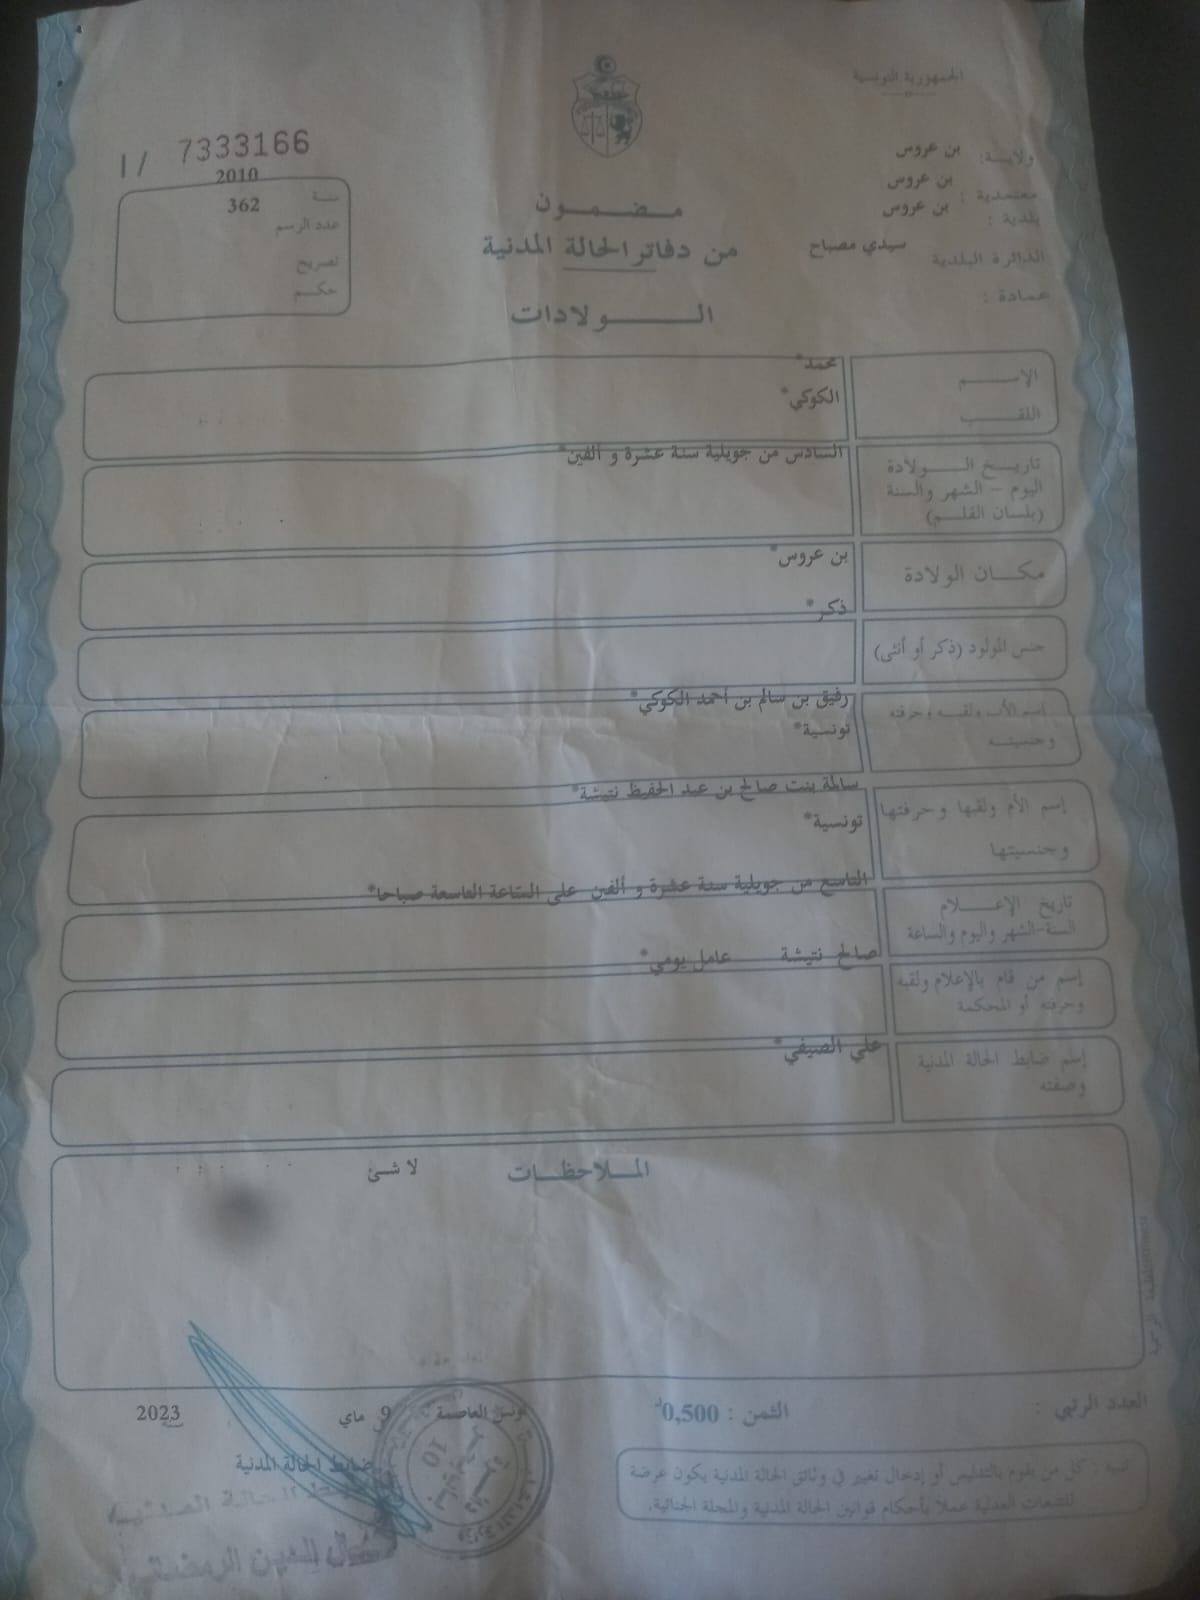 الجمهورية التونسية
ولاية: بن عروس
معتمدية : بن عروس
بلدية : بن عروس
الدائرة البلدية سيدي مصباح
عمادة :
I / 7333166
سنة 2010
عدد الرسم 362
تصريح
حكم
مضمون
من دفاتر الحالة المدنية
الولادات
الإسم محمد*
اللقب الكوكي*
تاريخ الولادة السادس من جويلية سنة عشرة و ألفين*
اليوم - الشهر والسنة
(بلسان القلم)
مكان الولادة بن عروس*
جنس المولود (ذكر أو أنثى) ذكر*
إسم الأب ولقبه وحرفته رفيق بن سالم بن أحمد الكوكي*
وجنسيته تونسية*
إسم الأم ولقبها وحرفتها سالمة بنت صالح بن عبد الحفيظ نتيشة*
وجنسيتها تونسية*
تاريخ الإعلام التاسع من جويلية سنة عشرة و ألفين على الساعة التاسعة صباحا*
السنة-الشهر واليوم والساعة
إسم من قام بالإعلام ولقبه صالح نتيشة عامل يومي*
وحرفته أو المحكمة
إسم ضابط الحالة المدنية علي الصيفي*
وصفته
الملاحظات لا شئ
العدد الرتبي :
الثمن : 0,500د
تونس العاصمة 9 ماي 2023
ضابط الحالة المدنية
تنبيه : كل من يقوم بالتدليس أو إدخال تغيير في وثائق الحالة المدنية يكون عرضة
للتتبعات العدلية عملا بأحكام قوانين الحالة المدنية والمجلة الجنائية.
ضابط الحالة المدنية